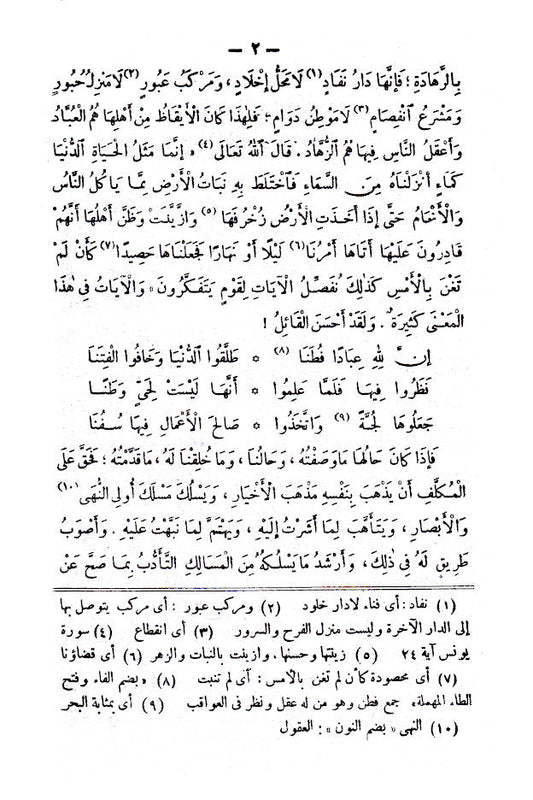 — ٢ —
بِالزَّهَادَةِ؛ فَإِنَّهَا دَارُ نَفَادٍ (١) لَا مَحَلُّ إِخْلَادٍ، وَمَرْكَبُ عُبُورٍ (٢) لَا مَنْزِلُ حُبُورٍ
وَمَشْرَعُ انْفِصَامٍ (٣) لَا مَوْطِنُ دَوَامٍ؛ فَلِهٰذَا كَانَ الْأَيْقَاظُ مِنْ أَهْلِهَا هُمُ الْعُبَّادُ
وَأَعْقَلُ النَّاسِ فِيهَا هُمُ الزُّهَّادُ. قَالَ اللهُ تَعَالَى (٤) «إِنَّمَا مَثَلُ الْحَيَاةِ الدُّنْيَا
كَمَاءٍ أَنْزَلْنَاهُ مِنَ السَّمَاءِ فَاخْتَلَطَ بِهِ نَبَاتُ الْأَرْضِ مِمَّا يَأْكُلُ النَّاسُ
وَالْأَنْعَامُ حَتَّى إِذَا أَخَذَتِ الْأَرْضُ زُخْرُفَهَا (٥) وَازَّيَّنَتْ وَظَنَّ أَهْلُهَا أَنَّهُمْ
قَادِرُونَ عَلَيْهَا أَتَاهَا أَمْرُنَا (٦) لَيْلًا أَوْ نَهَارًا فَجَعَلْنَاهَا حَصِيدًا (٧) كَأَنْ لَمْ
تَغْنَ بِالْأَمْسِ كَذٰلِكَ نُفَصِّلُ الْآيَاتِ لِقَوْمٍ يَتَفَكَّرُونَ» وَالْآيَاتُ فِي هٰذَا
الْمَعْنَى كَثِيرَةٌ. وَلَقَدْ أَحْسَنَ الْقَائِلُ !
إِنَّ لِلهِ عِبَادًا فُطَنَا (٨) * طَلَّقُوا الدُّنْيَا وَخَافُوا الْفِتَنَا
نَظَرُوا فِيهَا فَلَمَّا عَلِمُوا * أَنَّهَا لَيْسَتْ لِحَيٍّ وَطَنَا
جَعَلُوهَا لُجَّةً (٩) وَاتَّخَذُوا * صَالِحَ الْأَعْمَالِ فِيهَا سُفُنَا
فَإِذَا كَانَ حَالُهَا مَا وَصَفْتُهُ، وَحَالُنَا، وَمَا خُلِقْنَا لَهُ، مَا قَدَّمْتُهُ؛ فَحَقٌّ عَلَى
الْمُكَلَّفِ أَنْ يَذْهَبَ بِنَفْسِهِ مَذْهَبَ الْأَخْيَارِ، وَيَسْلُكَ مَسْلَكَ أُولِي النُّهَى (١٠)
وَالْأَبْصَارِ، وَيَتَأَهَّبَ لِمَا أَشَرْتُ إِلَيْهِ، وَيَهْتَمَّ لِمَا نَبَّهْتُ عَلَيْهِ. وَأَصْوَبُ
طَرِيقٍ لَهُ فِي ذٰلِكَ، وَأَرْشَدُ مَا يَسْلُكُهُ مِنَ الْمَسَالِكِ التَّأَدُّبُ بِمَا صَحَّ عَنْ
(١) نفاد: أى فناء لا دار خلود (٢) ومركب عبور: أى مركب يتوصل بها
إلى الدار الآخرة وليست منزل الفرح والسرور (٣) أى انقطاع (٤) سورة
يونس آية ٢٤ (٥) زينتها وحسنها. وازينت بالنبات والزهر (٦) أى قضاؤنا
(٧) أى محصودة كأن لم تغن بالأمس: أى لم تنبت (٨) «بضم الفاء وفتح
الطاء المهملة» جمع فطن وهو من له عقل ونظر فى العواقب (٩) أى بمثابة البحر
(١٠) النهى «بضم النون»: العقول